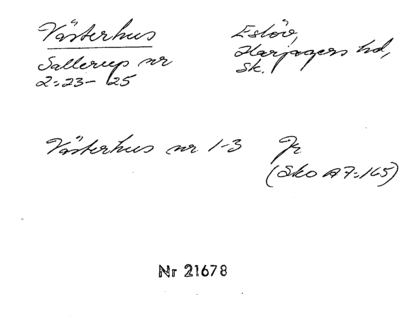 Västerhus
Eslöv,
Sallerup nr
Harjagers hd,
2:23-25
Sk.
Västerhus nr 1-3 Jr
(Sko A7:165)
Nr 21678